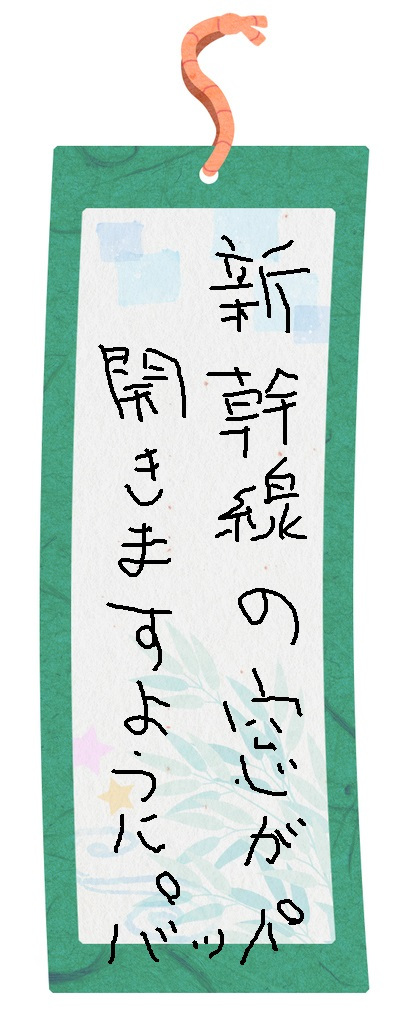 新幹線の窓が
開きますように
パッパ